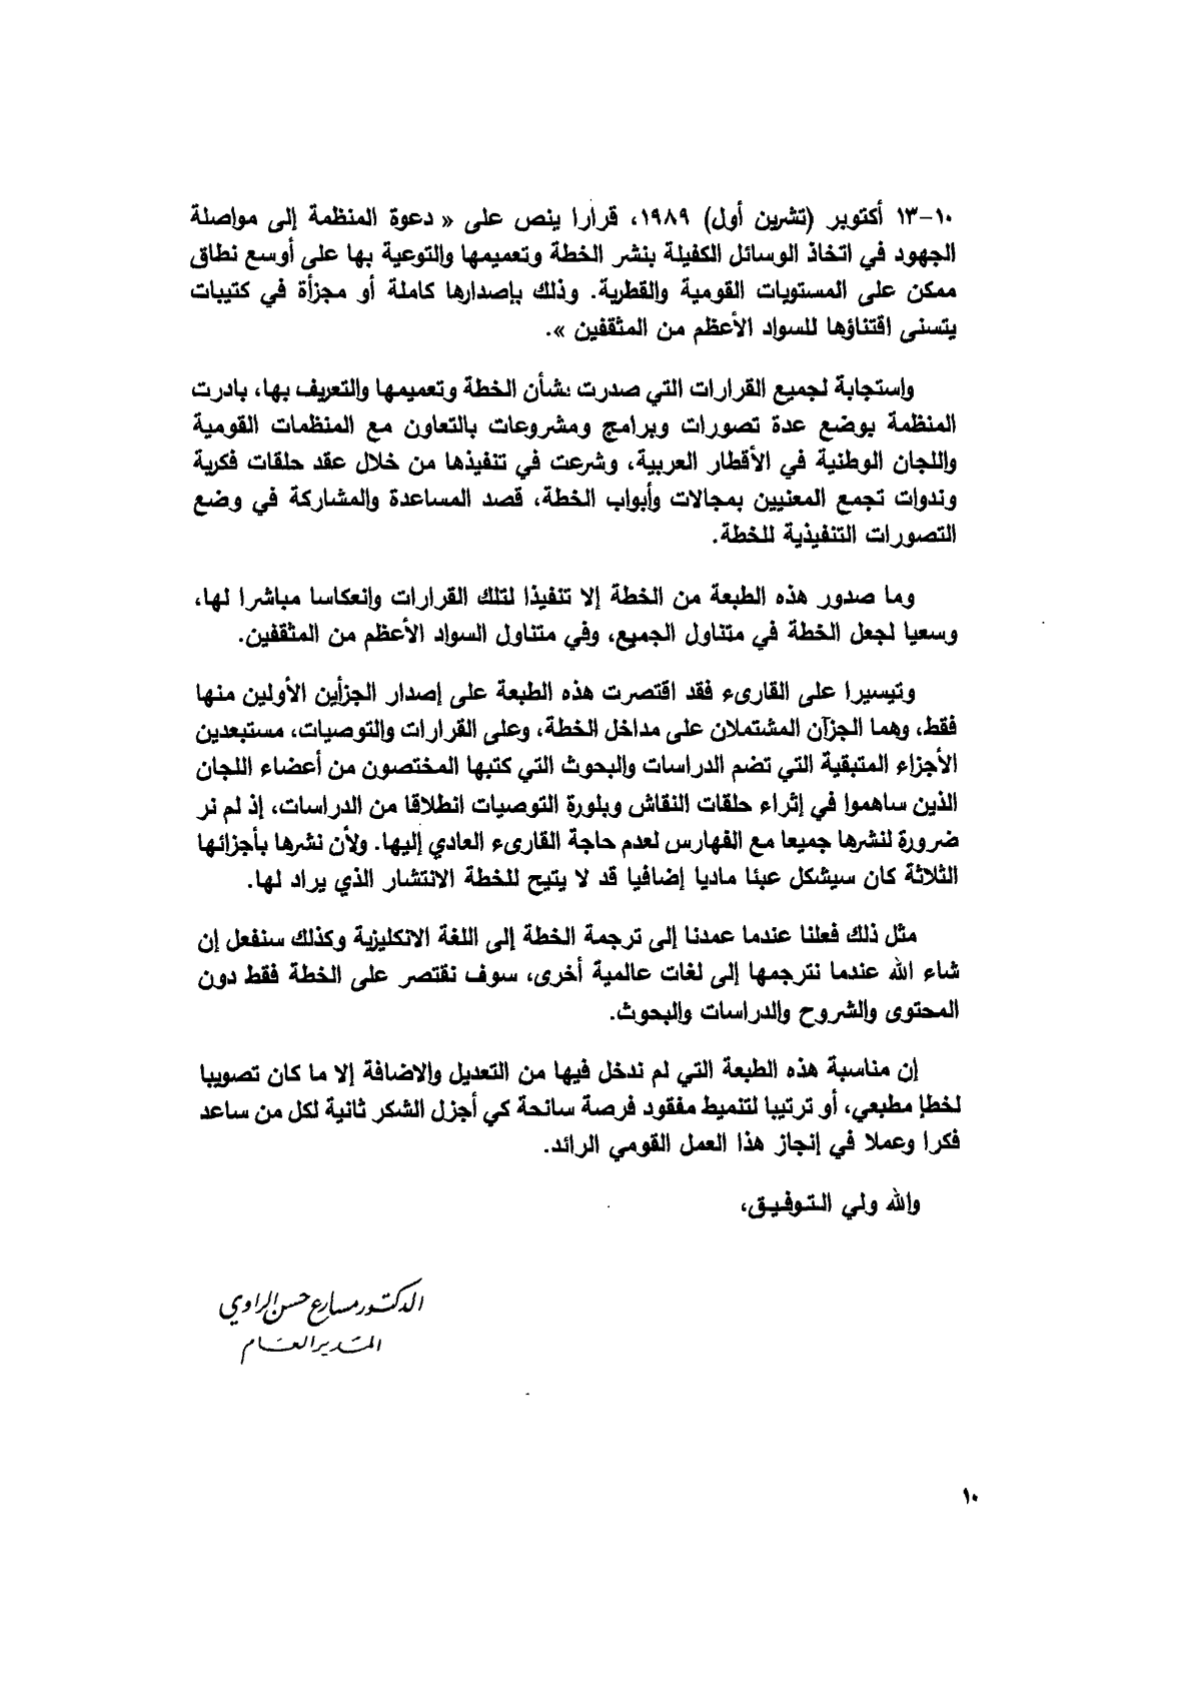 ١٠-١٣ أكتوبر (تشرين أول) ١٩٨٩، قرارا ينص على « دعوة المنظمة إلى مواصلة
الجهود في اتخاذ الوسائل الكفيلة بنشر الخطة وتعميمها والتوعية بها على أوسع نطاق
ممكن على المستويات القومية والقطرية. وذلك بإصدارها كاملة أو مجزأة في كتيبات
يتسنى اقتناؤها للسواد الأعظم من المثقفين ».
واستجابة لجميع القرارات التي صدرت بشأن الخطة وتعميمها والتعريف بها، بادرت
المنظمة بوضع عدة تصورات وبرامج ومشروعات بالتعاون مع المنظمات القومية
واللجان الوطنية في الأقطار العربية، وشرعت في تنفيذها من خلال عقد حلقات فكرية
وندوات تجمع المعنيين بمجالات وأبواب الخطة، قصد المساعدة والمشاركة في وضع
التصورات التنفيذية للخطة.
وما صدور هذه الطبعة من الخطة إلا تنفيذا لتلك القرارات وانعكاسا مباشرا لها،
وسعيا لجعل الخطة في متناول الجميع، وفي متناول السواد الأعظم من المثقفين.
وتيسيرا على القارىء فقد اقتصرت هذه الطبعة على إصدار الجزأين الأولين منها
فقط، وهما الجزآن المشتملان على مداخل الخطة، وعلى القرارات والتوصيات، مستبعدين
الأجزاء المتبقية التي تضم الدراسات والبحوث التي كتبها المختصون من أعضاء اللجان
الذين ساهموا في إثراء حلقات النقاش وبلورة التوصيات انطلاقا من الدراسات، إذ لم نر
ضرورة لنشرها جميعا مع الفهارس لعدم حاجة القارىء العادي إليها. ولأن نشرها بأجزائها
الثلاثة كان سيشكل عبئا ماديا إضافيا قد لا يتيح للخطة الانتشار الذي يراد لها.
مثل ذلك فعلنا عندما عمدنا إلى ترجمة الخطة إلى اللغة الانكليزية وكذلك سنفعل إن
شاء الله عندما نترجمها إلى لغات عالمية أخرى، سوف نقتصر على الخطة فقط دون
المحتوى والشروح والدراسات والبحوث.
إن مناسبة هذه الطبعة التي لم ندخل فيها من التعديل والاضافة إلا ما كان تصويبا
لخطإ مطبعي، أو ترتيبا لتنميط مفقود فرصة سانحة كي أجزل الشكر ثانية لكل من ساعد
فكرا وعملا في إنجاز هذا العمل القومي الرائد.
والله ولي التوفيق،
الدكتور مسارع حسن الراوي
المدير العام
١٠